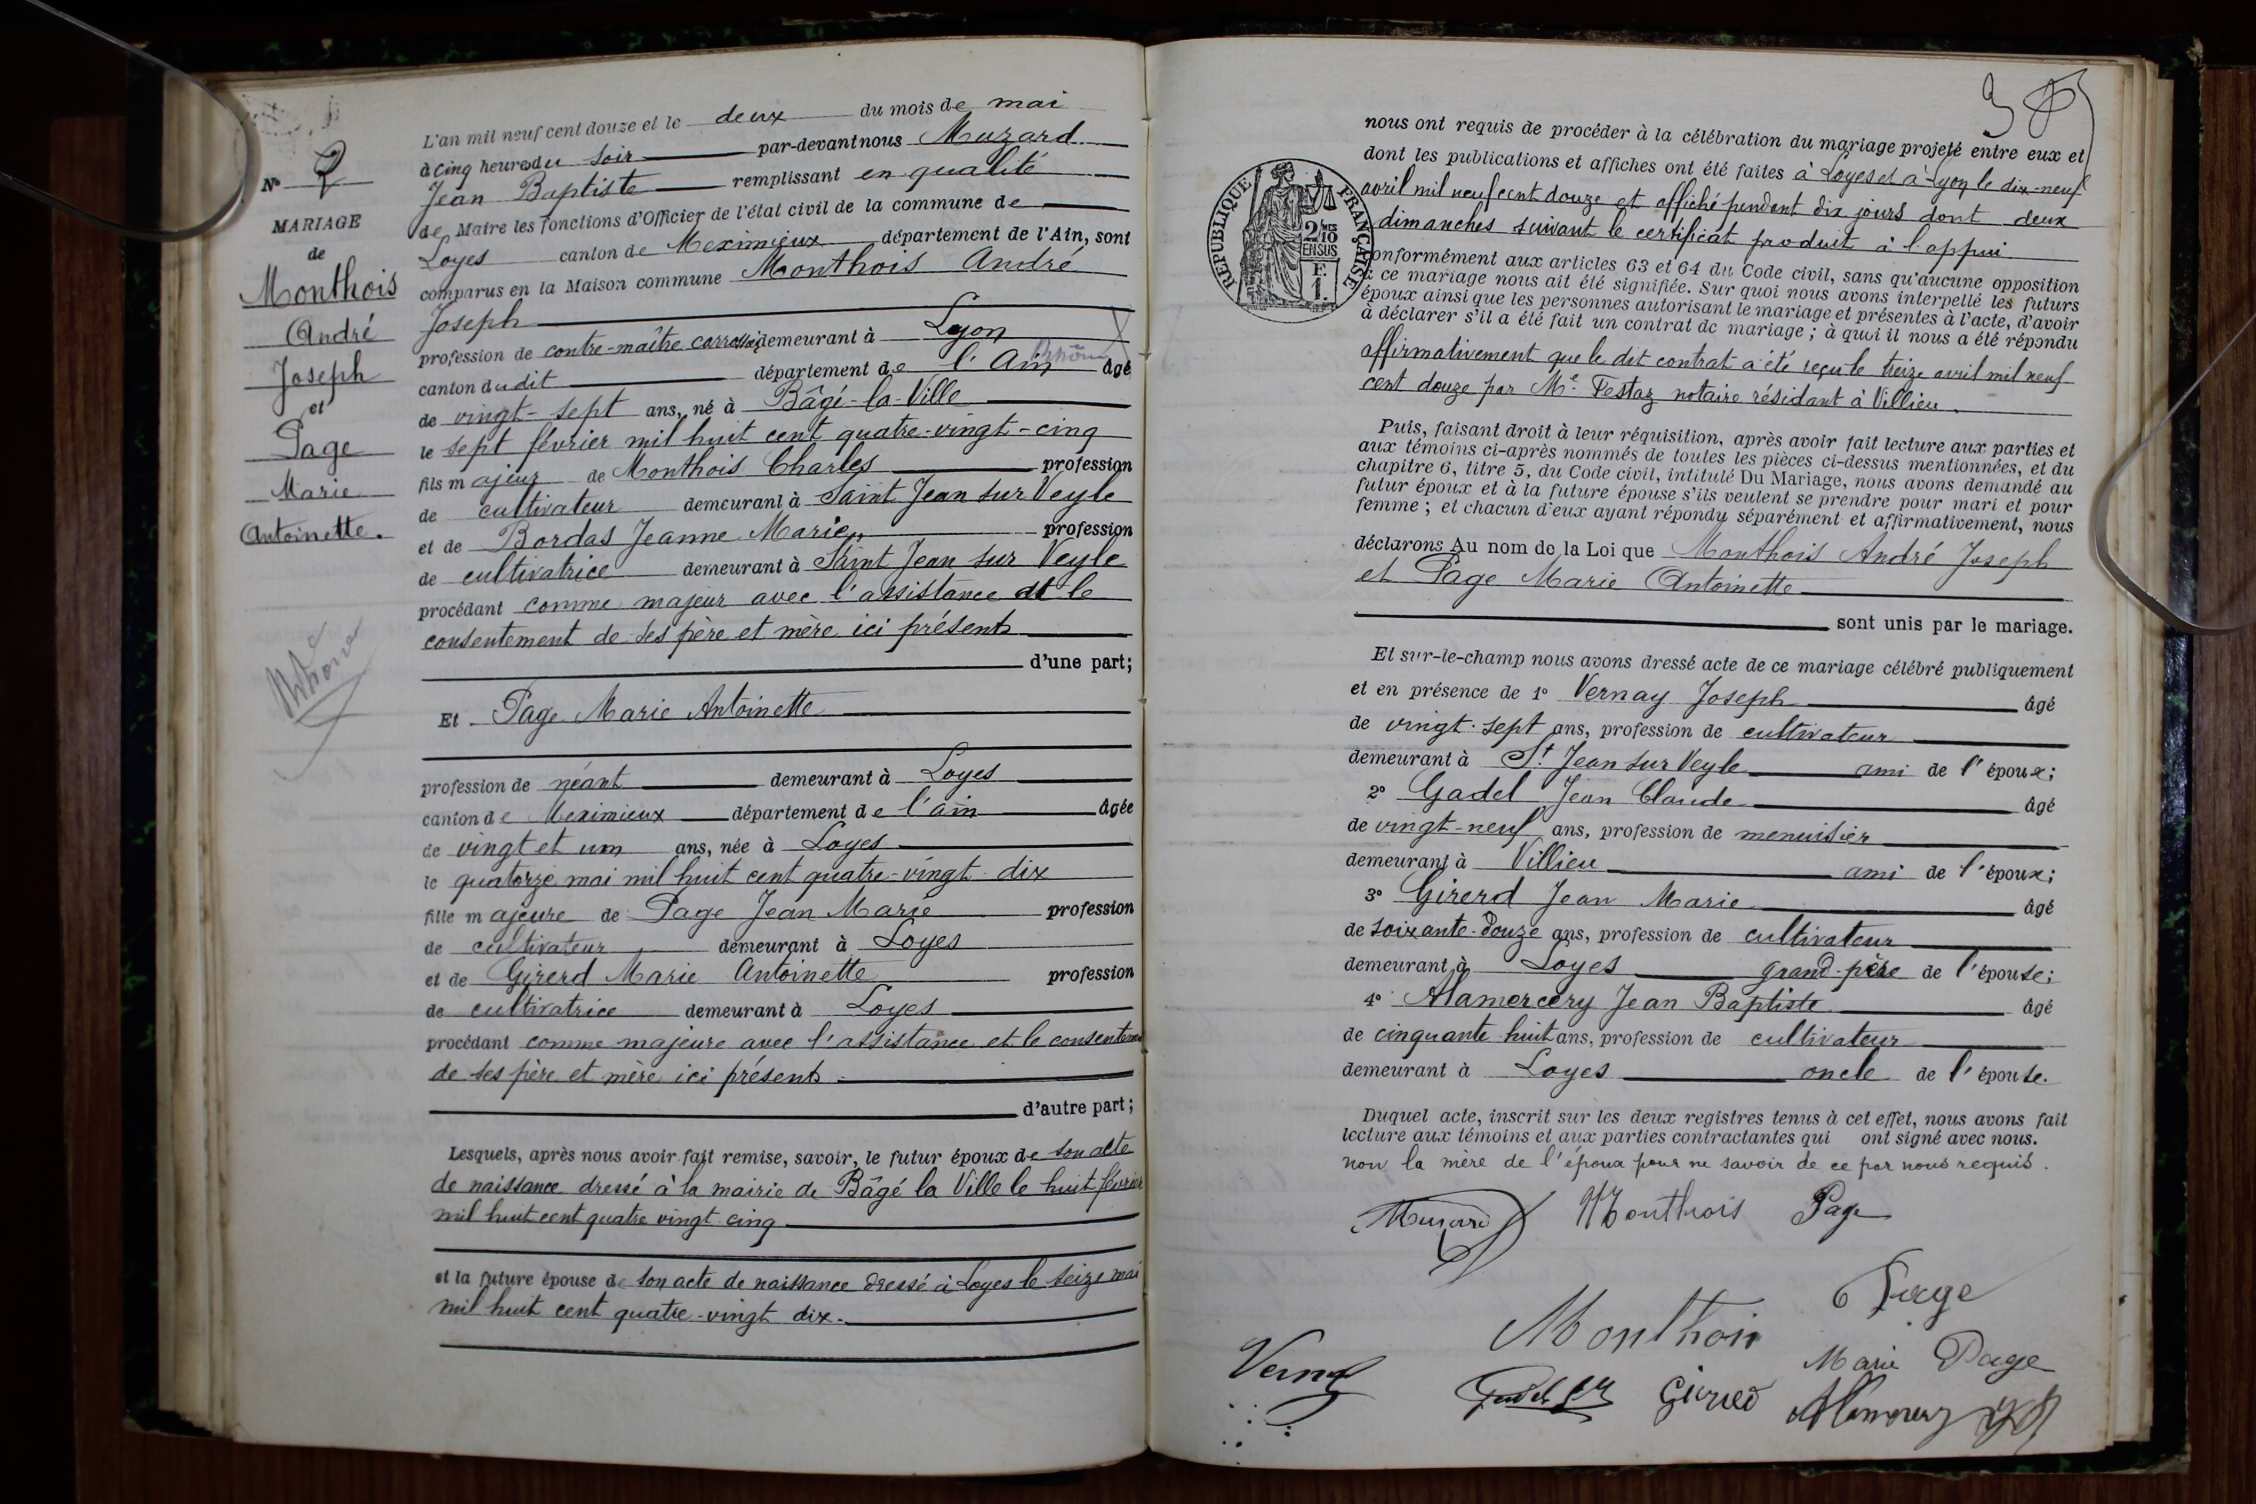 N° 2
MARIAGE
de
Monthois
André
Joseph
et
Page
Marie
Antoinette.
L'an mil neuf cent douze et le deux du mois de mai
à cinq heures du soir par-devant nous Muzard
Jean Baptiste remplissant en qualité
de Maire les fonctions d'Officier de l'état civil de la commune de
Loyes canton de Meximieux département de l'Ain, sont
comparus en la Maison commune Monthois André
Joseph
profession de contre-maître carrossier demeurant à Lyon
canton du dit département de l'Ain Rhône âgé
de vingt-sept ans, né à Bâgé-la-Ville
le sept février mil huit cent quatre-vingt-cinq
fils majeur de Monthois Charles profession
de cultivateur demeurant à Saint Jean sur Veyle
et de Bordas Jeanne Marie profession
de cultivatrice demeurant à Saint Jean sur Veyle
procédant comme majeur avec l'assistance et le
consentement de ses père et mère ici présents
d'une part;
Et Page Marie Antoinette
profession de néant demeurant à Loyes
canton de Meximieux département de l'ain âgée
de vingt et um ans, née à Loyes
le quatorze mai mil huit cent quatre-vingt dix
fille majeure de Page Jean Marie profession
de cultivateur demeurant à Loyes
et de Girerd Marie Antoinette profession
de cultivatrice demeurant à Loyes
procédant comme majeure avec l'assistance et le consentement
de ses père et mère ici présents
d'autre part;
Lesquels, après nous avoir fait remise, savoir, le futur époux de son acte
de naissance dressé à la mairie de Bâgé la Ville le huit février
mil huit cent quatre vingt cinq
et la future épouse de son acte de naissance dressé à Loyes le seize mai
mil huit cent quatre-vingt dix.
REPUBLIQUE FRANÇAISE
2/10
EN SUS
nous ont requis de procéder à la célébration du mariage projeté entre eux et
dont les publications et affiches ont été faites à Loyes et à Lyon le dix-neuf
avril mil neuf cent douze et affiché pendant dix jours dont deux
dimanches suivant le certificat produit à l'appui
conformément aux articles 63 et 64 du Code civil, sans qu'aucune opposition
à ce mariage nous ait été signifiée. Sur quoi nous avons interpellé les futurs
époux ainsi que les personnes autorisant le mariage et présentes à l'acte, d'avoir
à déclarer s'il a été fait un contrat de mariage; à quoi il nous a été répondu
affirmativement que le dit contrat a été reçu le treize avril mil neuf
cent douze par Me. Festaz notaire résidant à Villieu.
Puis, faisant droit à leur réquisition, après avoir fait lecture aux parties et
aux témoins ci-après nommés de toutes les pièces ci-dessus mentionnées, et du
chapitre 6, titre 5, du Code civil, intitulé Du Mariage, nous avons demandé au
futur époux et à la future épouse s'ils veulent se prendre pour mari et pour
femme; et chacun d'eux ayant répondu séparément et affirmativement, nous
déclarons Au nom de la Loi que Monthois André Joseph
et Page Marie Antoinette
sont unis par le mariage.
Et sur-le-champ nous avons dressé acte de ce mariage célébré publiquement
et en présence de 1° Vernay Joseph âgé
de vingt-sept ans, profession de cultivateur
demeurant à St Jean sur Veyle ami de l'époux;
2° Gadel Jean Claude âgé
de vingt-neuf ans, profession de menuisier
demeurant à Villieu ami de l'époux;
3° Girerd Jean Marie âgé
de soixante-douze ans, profession de cultivateur
demeurant à Loyes grand-père de l'épouse;
4° Alamercery Jean Baptiste âgé
de cinquante huit ans, profession de cultivateur
demeurant à Loyes oncle de l'épouse.
Duquel acte, inscrit sur les deux registres tenus à cet effet, nous avons fait
lecture aux témoins et aux parties contractantes qui ont signé avec nous.
non la mère de l'époux pour ne savoir de ce par nous requis.
Muzard Monthois Page
Page
Monthois
Marie Page
Vernay
Gadel Girerd Alamercery